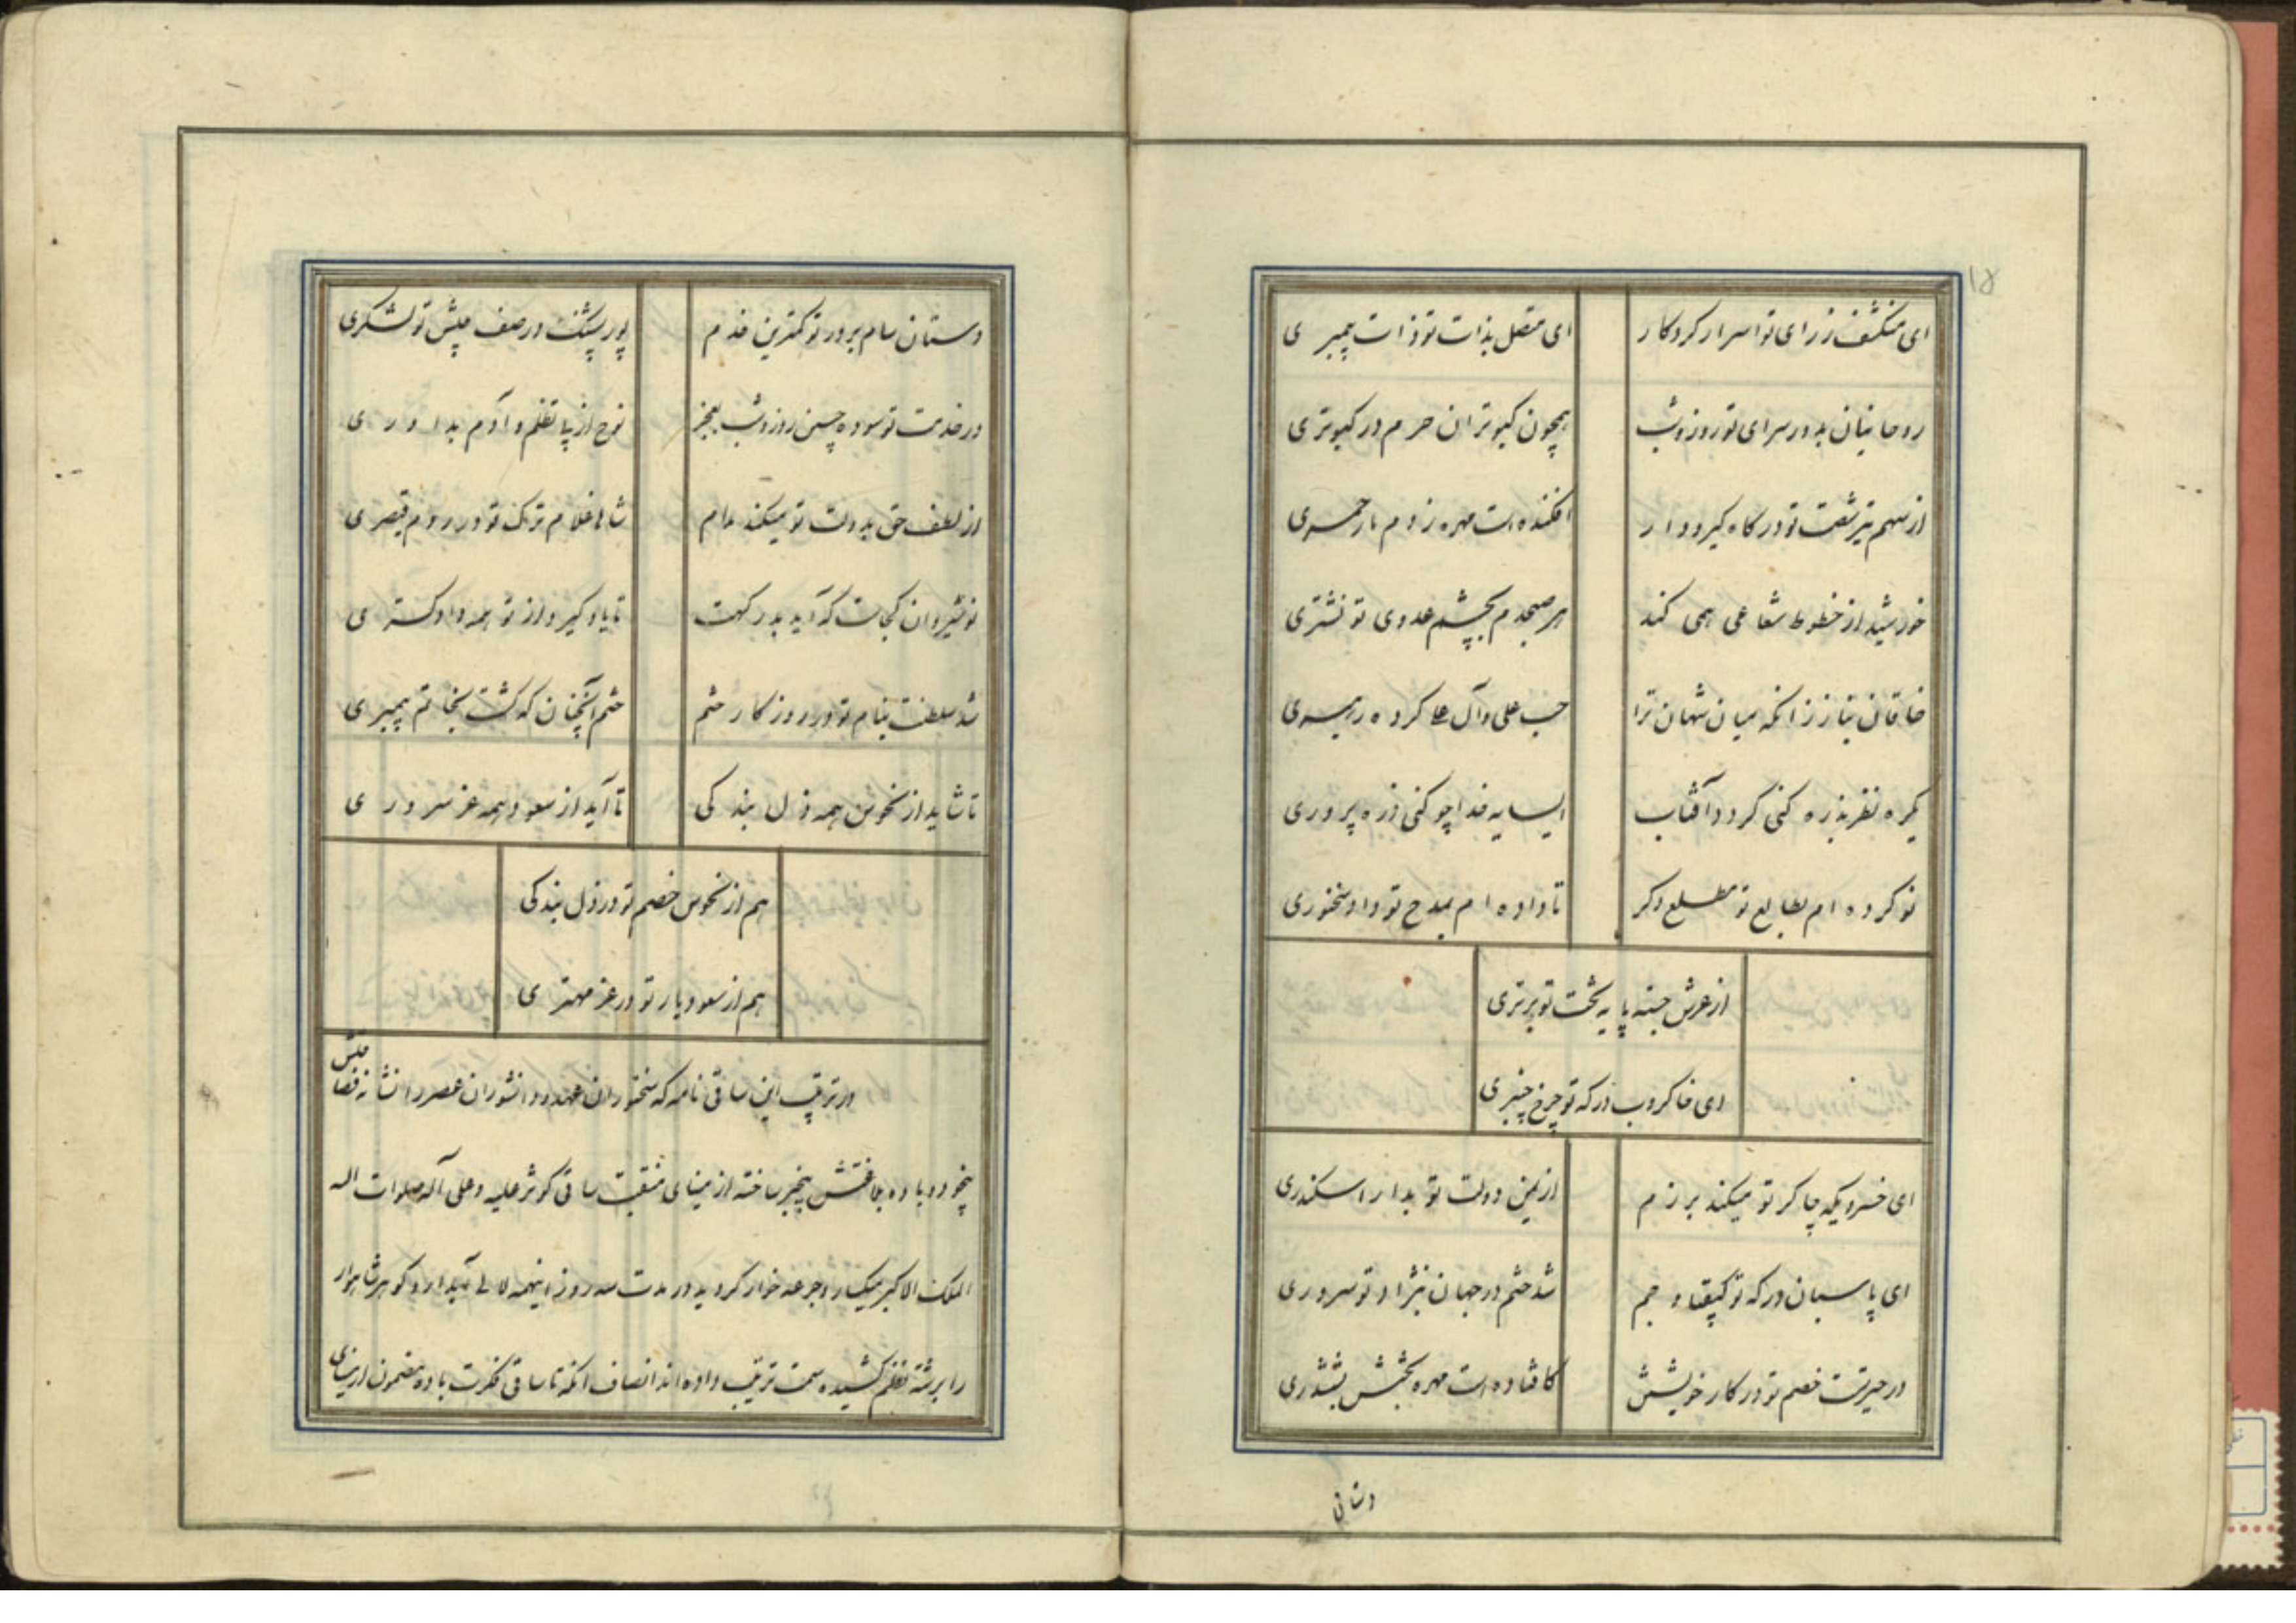 ۱۵
ای منکشف ز رای تو اسرار کردکار ای متصل بذات تو ذات پیمبری
روحانیان بدور سرای تو روز و شب همچون کبوتران حرم در کبوتری
از سهم تیر شست تو در کاه کیر و دار افکنده است مهره ز دم مار حمیری
خورشید از خطوط شعاعی همی کند هر صبحدم بچشم عدوی تو نشتری
خاقان بناز زانکه میان شهان ترا حب علی و آل علی کرده رهبری
یکره نظر بذره کنی کردد آفتاب ای سایه خدا چو کنی ذره پروری
نو کرده ام بطالع تو مطلع دکر تا داده ام بمدح تو داد سخنوری
از عرش جسته پایه تخت تو برتری
ای خاکروب درکه تو چرخ چنبری
ای خسرویکه چاکر تو میکند برزم از یمن دولت تو بدارا سکندری
ای پاسبان درکه تو کیقباد و جم شد ختم در جهان بنژاد تو سروری
در حیرتست خصم تو در کار خویشتن کافتاده است مهره بختش بششدری
دستان
دستان سام بر در تو کمترین خدم پور پشنک در صف جیش تو لشکری
در خدمت تو سوده جبین روز و شب بعجز نوح از پا تظلم و آدم بداوری
از لطف حق بدولت تو میکند مدام شاها غلام ترک تو در روم قیصری
نوشیروان کجاست که آید بدرکهت تا یاد کیرد از تو همه دادکستری
شد سلطنت بنام تو در روزکار ختم ختم آنچنان که کشت بخاتم پیمبری
تا شاید از نحوس همه ذل بندکی تا آید از سعود همه عز سروری
هم از نحوس خصم تو در ذل بندکی
هم از سعود یار تو در عز مهتری
در ترتیب این ساقی نامه که سخنوران عهد و دانشوران عصر را نشانه فصاحتش
بیخود و باده بلاغتش بیخبر ساخته از مینای منقبت ساقی کوثر علیه و علی آله صلوات اله
الملک الاکبر میکسار و جرعه خوار کردید در مدت سه روز اینهمه لالی آبدار و کوهر شاهوار
را برشته نظم کشیده سمت ترتیب داده اند انصاف آنکه تا ساقی فکرت باده مضمون از مینای